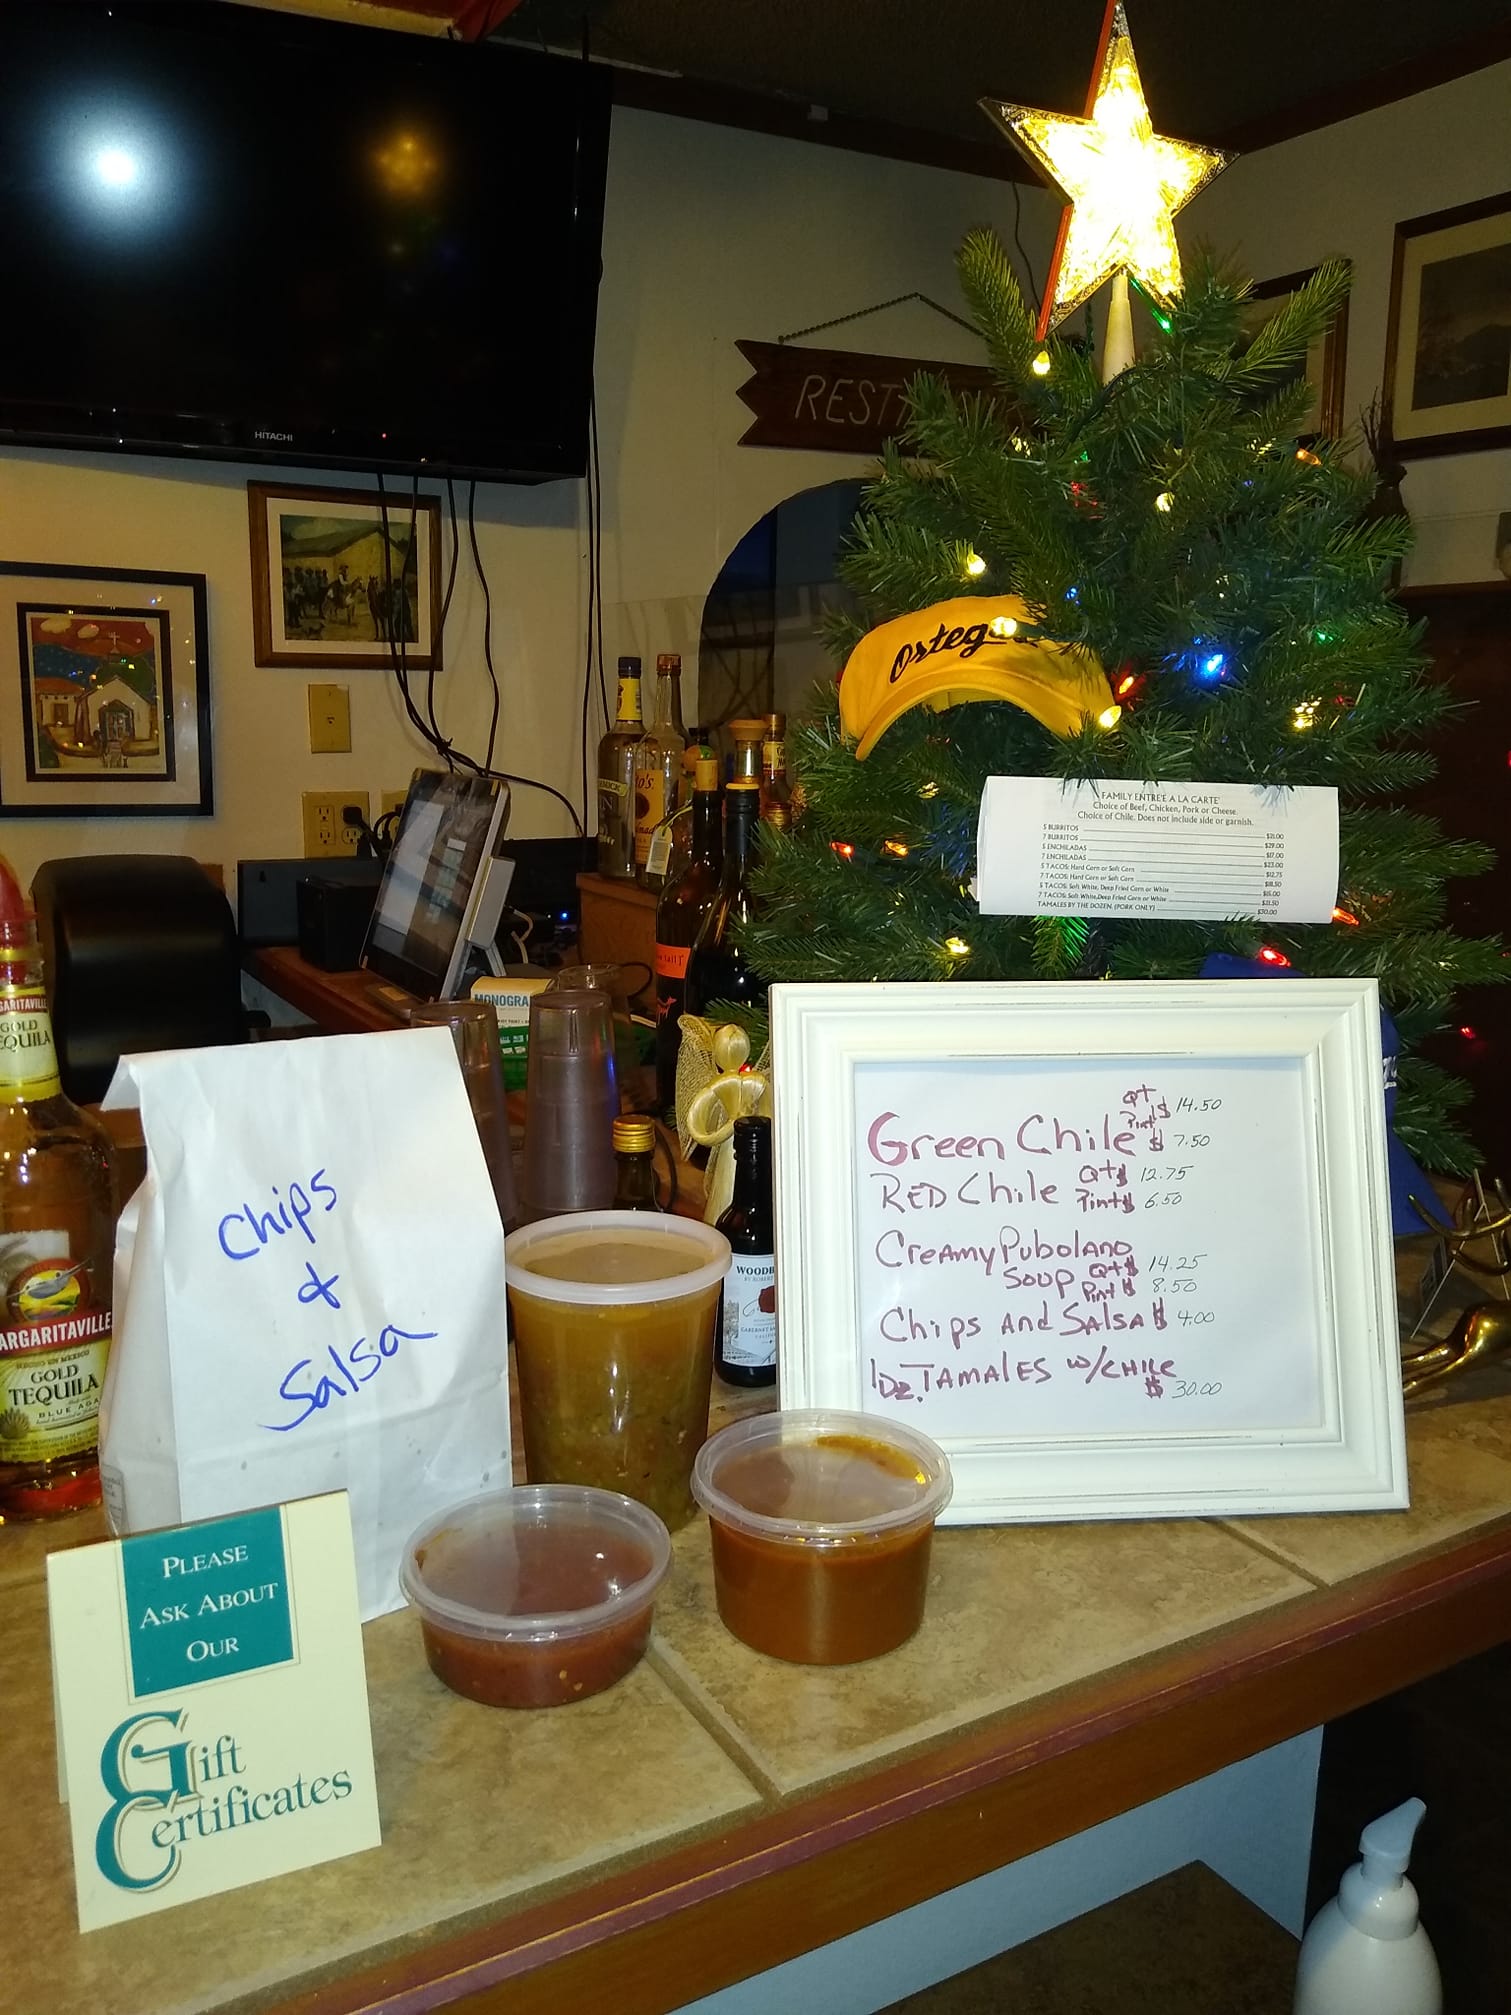 HITACHI
REST
Ortega
FAMILY ENTRE'E A LA CARTE'
Choice of Beef, Chicken, Pork or Cheese.
Choice of Chile. Does not include side or garnish.
5 BURRITOS $21.00
7 BURRITOS $29.00
5 ENCHILADAS $17.00
7 ENCHILADAS $23.00
5 TACOS: Hard Corn or Soft Corn $12.75
7 TACOS: Hard Corn or Soft Corn $18.50
5 TACOS: Soft White, Deep Fried Corn or White $15.00
7 TACOS: Soft White, Deep Fried Corn or White $21.50
TAMALES BY THE DOZEN. (PORK ONLY) $30.00
MONOGRA
GARITAVILLE
GOLD
TEQUILA
Chips
&
Salsa
Qt $ 14.50
Green Chile Pint $ 7.50
RED Chile Qt $ 12.75
Pint $ 6.50
Creamy Pubolano
Soup Qt $ 14.25
Pint $ 8.50
Chips And Salsa $ 4.00
1 Dz. TAMALES w/CHILE
$ 30.00
WOODB
ARGARITAVILLE
GOLD
TEQUILA
BLUE AGA
PLEASE
ASK ABOUT
OUR
GIFT
CERTIFICATES